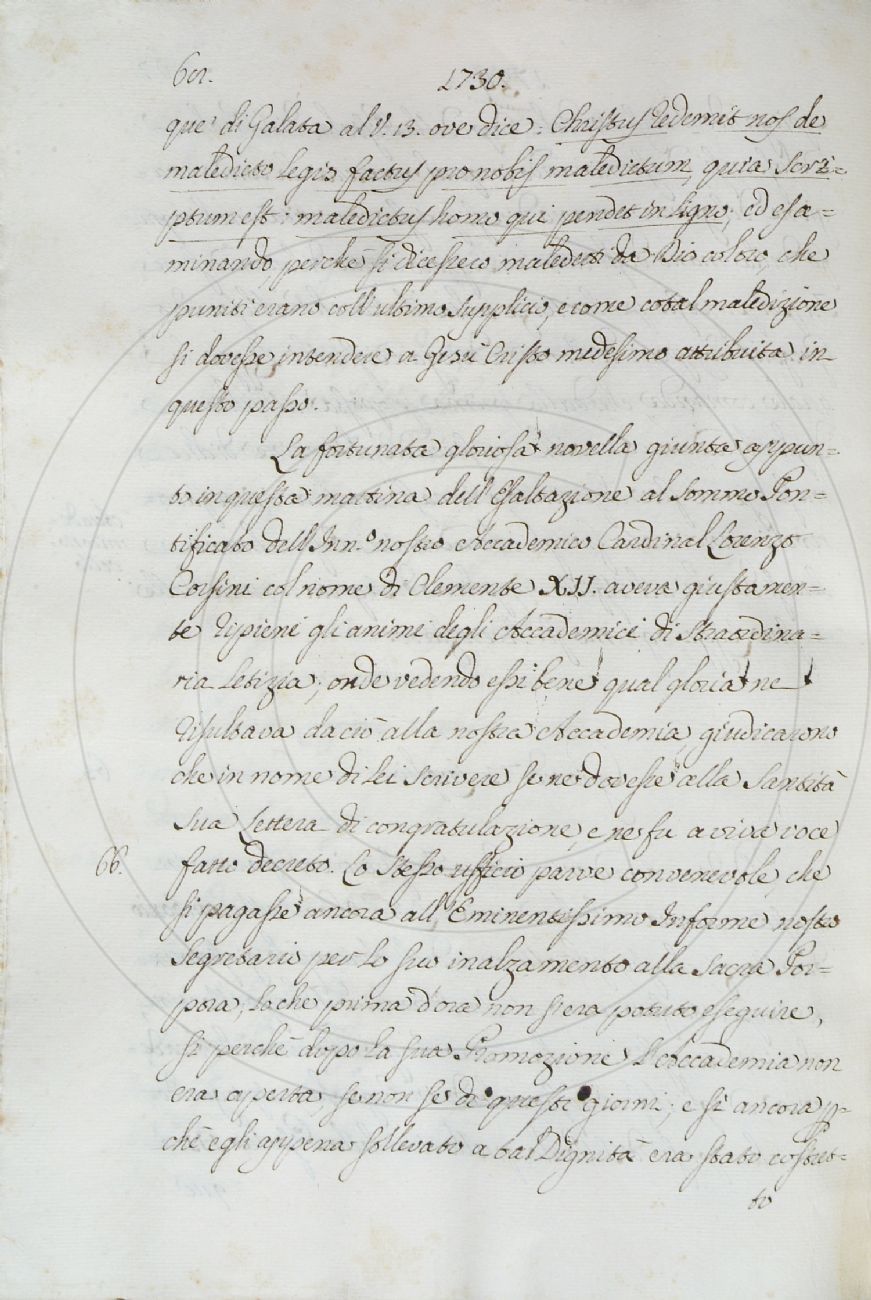 601. 1730.
que' di Galata al V. 13. ove dice = Christus redemit nos de
maledicto legis factus pro nobis maledictum, quia scri=
ptum est: maledictus homo qui pendet in ligno; ed esa=
minando, perchè si dicessero maledetti da Dio coloro, che
puniti erano coll'ultimo supplicio, e come cotal maledizione
si dovesse intendere a Gesù Cristo medesimo attribuita in
questo passo.
La fortunata gloriosa novella giunta appun=
to in questa mattina dell'Esaltazione al Sommo Pon=
tificato dell'Inn.o nostro Accademico Cardinal Lorenzo
Corsini col nome di Clemente XII. aveva giustamen=
te ripieni gli animi degli Accademici di straordina=
ria letizia; onde vedendo essi bene qual gloria ne
risultava da ciò alla nostra Accademia, giudicarono
che in nome di lei scrivere se ne dovesse alla Santità
sua Lettera di congratulazione, e ne fu a viva voce
66. fatto decreto. Lo stesso ufficio parve convenevole, che
si pagasse ancora all'Eminentissimo Informe nostro
Segretario per lo suo inalzamento alla Sacra Por=
pora; lo che prima d'ora non si era potuto eseguire,
sì perchè dopo la sua Promozione l'Accademia non
era aperta, se non se di questi giorni; e sì ancora p=
chè egli appena sollevato a tal Dignità era stato costret=
to